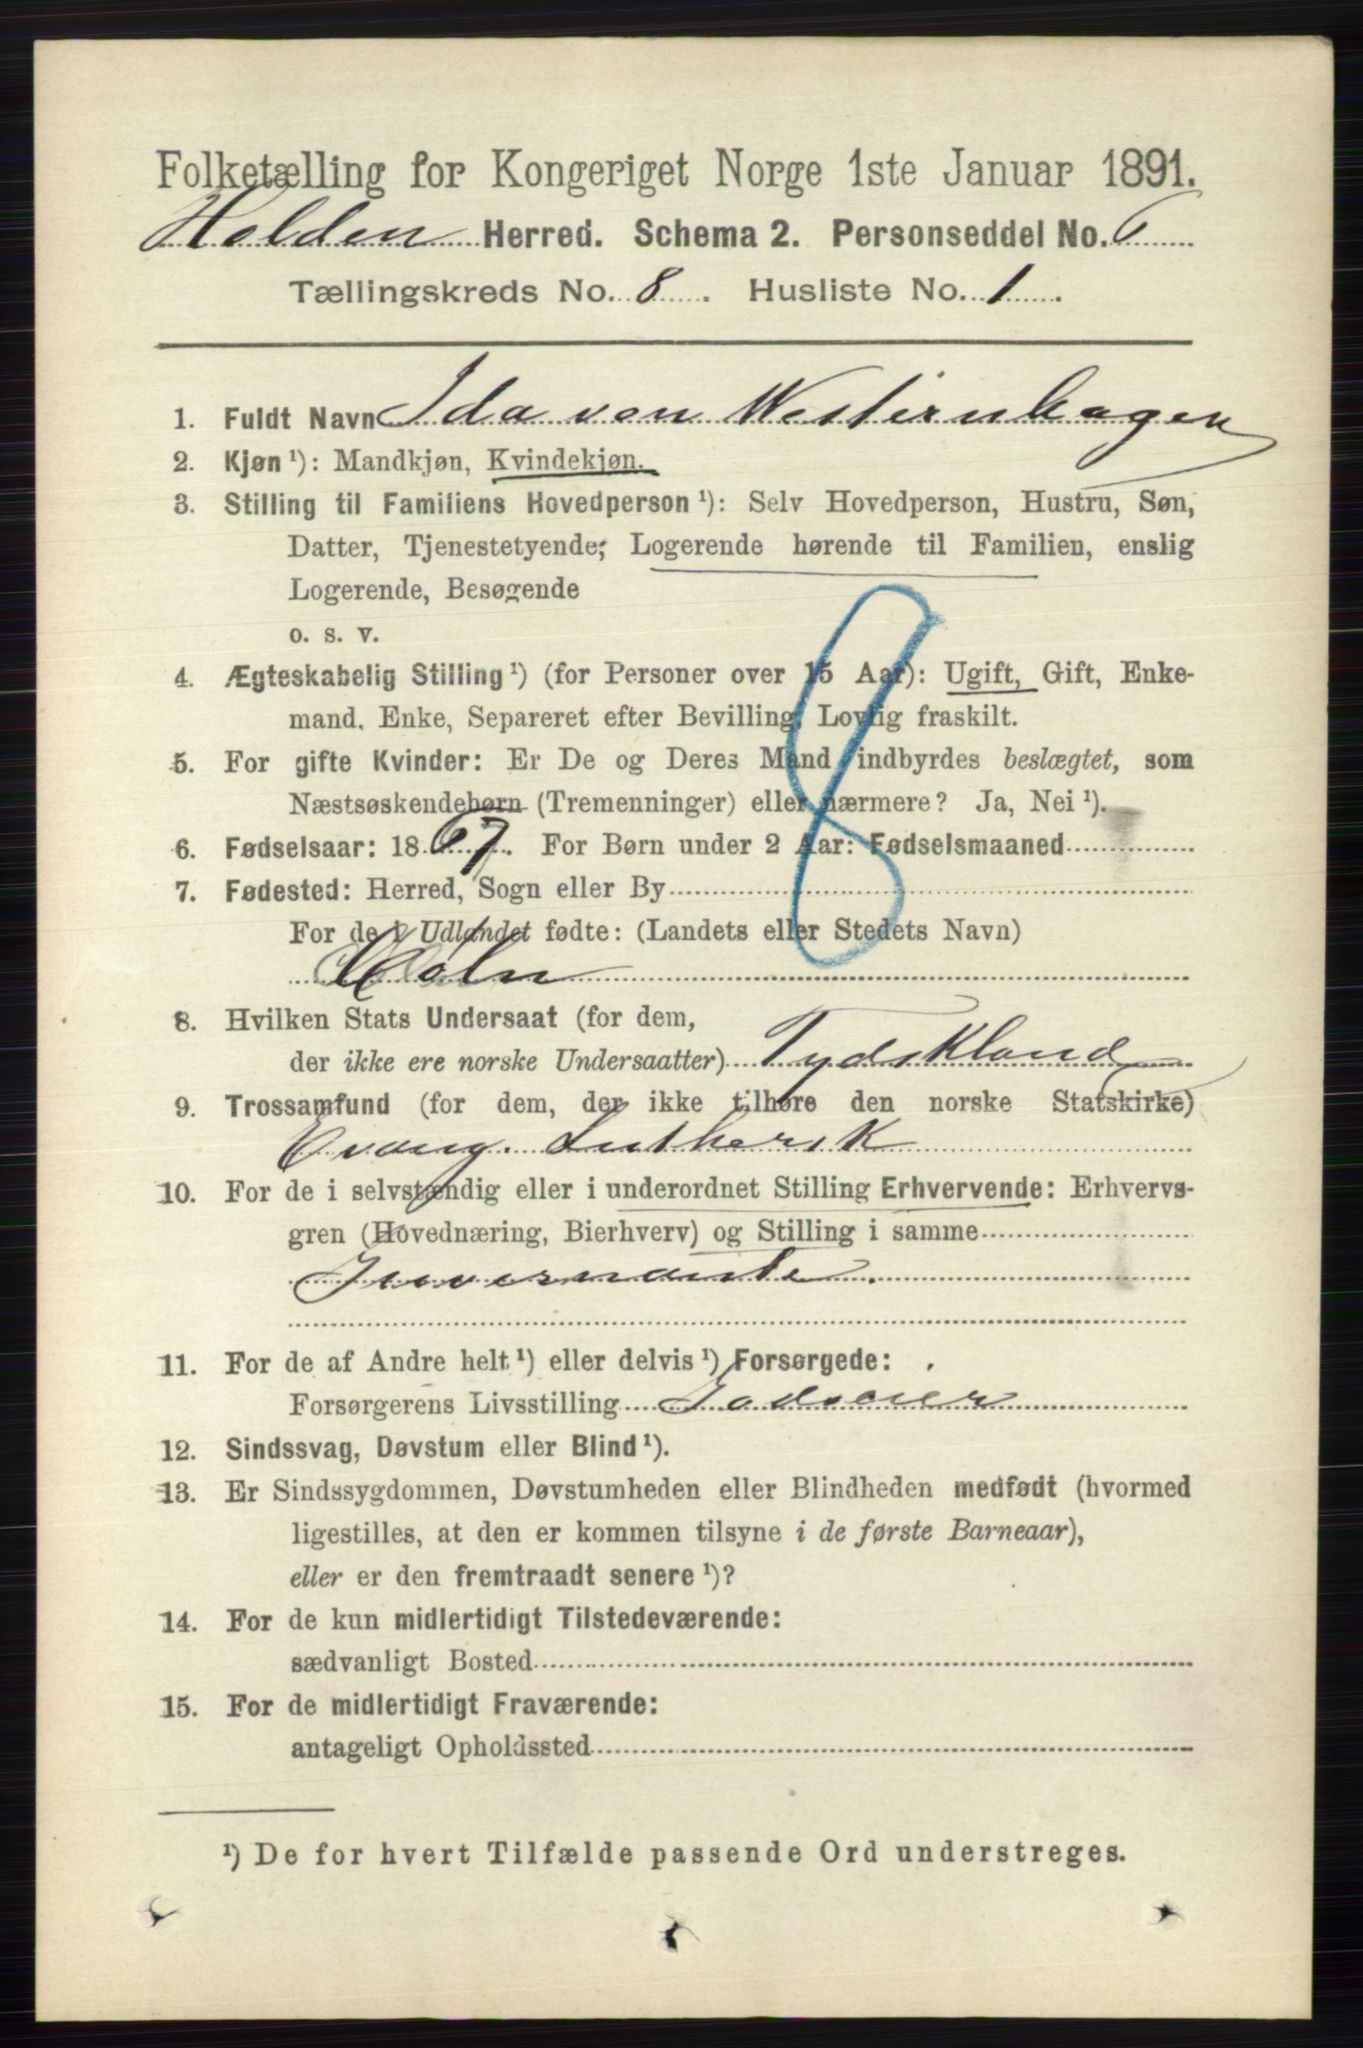 Folketælling for Kongeriget Norge 1ste Januar 1891.
Holden Herred. Schema 2. Personseddel No. 6
Tællingskreds No. 8. Husliste No. 1.
1. Fuldt Navn Ida von Westernhagen
2. Kjøn ¹): Mandkjøn, Kvindekjøn.
3. Stilling til Familiens Hovedperson ¹): Selv Hovedperson, Hustru, Søn,
Datter, Tjenestetyende, Logerende hørende til Familien, enslig
Logerende, Besøgende
o. s. v.
4. Ægteskabelig Stilling ¹) (for Personer over 15 Aar): Ugift, Gift, Enke-
mand, Enke, Separeret efter Bevilling, Lovlig fraskilt.
5. For gifte Kvinder: Er De og Deres Mand indbyrdes beslægtet, som
Næstsøskendebørn (Tremenninger) eller nærmere? Ja, Nei ¹).
6. Fødselsaar: 1867. For Børn under 2 Aar: Fødselsmaaned
7. Fødested: Herred, Sogn eller By
For de i Udlandet fødte: (Landets eller Stedets Navn)
Cøln
8. Hvilken Stats Undersaat (for dem,
der ikke ere norske Undersaatter) Tydskland
9. Trossamfund (for dem, der ikke tilhøre den norske Statskirke)
Evang. Luthersk
10. For de i selvstændig eller i underordnet Stilling Erhvervende: Erhvervs-
gren (Hovednæring, Bierhverv) og Stilling i samme
Guvernante.
11. For de af Andre helt ¹) eller delvis ¹) Forsørgede:
Forsørgerens Livsstilling Godseier
12. Sindssvag, Døvstum eller Blind ¹).
13. Er Sindssygdommen, Døvstumheden eller Blindheden medfødt (hvormed
ligestilles, at den er kommen tilsyne i de første Barneaar),
eller er den fremtraadt senere ¹)?
14. For de kun midlertidigt Tilstedeværende:
sædvanligt Bosted
15. For de midlertidigt Fraværende:
antageligt Opholdssted
¹) De for hvert Tilfælde passende Ord understreges.
8